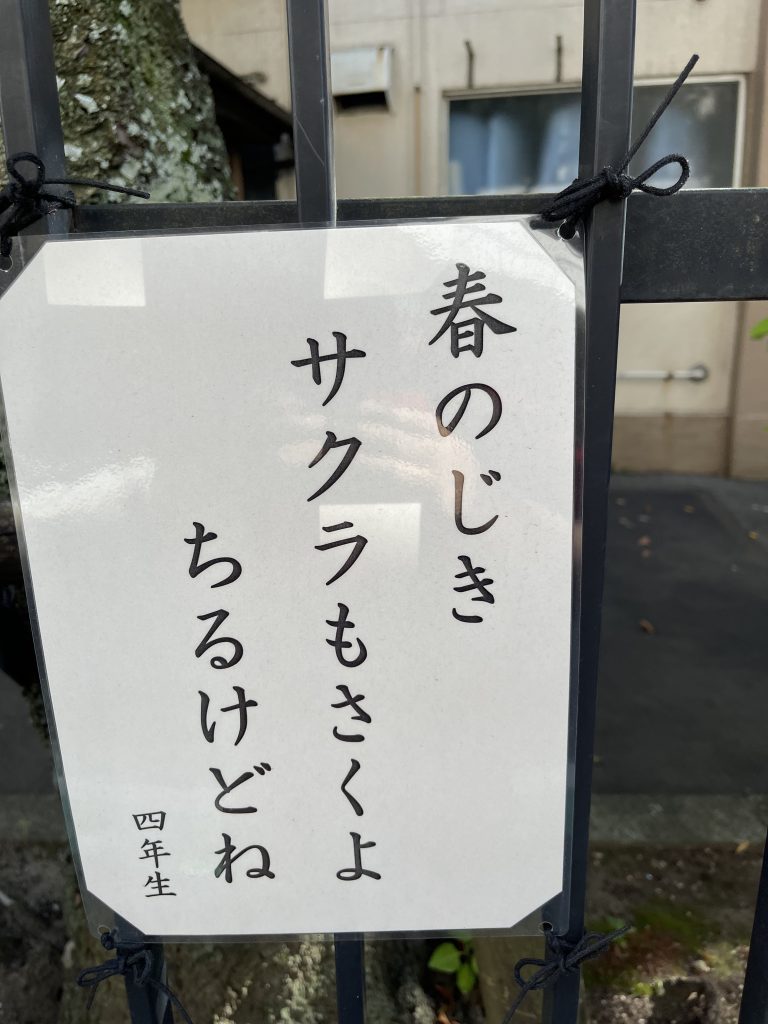 春のじき
サクラもさくよ
ちるけどね
四年生